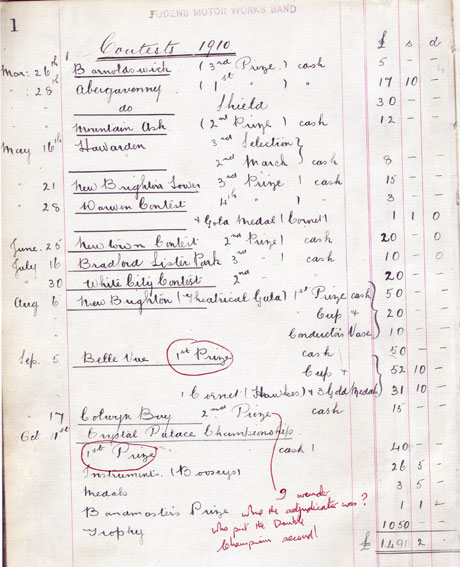 FODENS MOTOR WORKS BAND
1
Contests 1910 £ s d
Mar: 26th Barnoldswich (3rd Prize) cash 5 - -
" 28 Abergavonny (1st " ) " 17 10 -
do Shield 30 - -
Mountain Ash (2nd Prize) cash 12 - -
May 16th Hawarden 3rd Selection }
2nd March } cash 8 - -
" 21 New Brighton Tower 3rd Prize) cash 15 - -
" 28 Darwen Contest 4th " ) " 3 - -
+ Gold Medal (Cornet) 1 1 0
June. 25 Newtown Contest 2nd Prize) cash 20 - 0
July 16 Bradford Lister Park 3rd " ) cash 10 - 0
" 30 White City Contest 2nd " 20 - -
Aug 6 New Brighton (Theatrical Gala) 1st Prize cash } 50 - -
Cup + 20 - -
Conductor's Vase 10 - -
Sep. 5 Belle Vue 1st Prize cash 50 - -
" Cup + 52 10 -
(Cornet (Hawkes) + 3 Gold Medals 31 10 -
17 Colwyn Bay 2nd Prize cash 15 - -
Oct 1st Crystal Palace Championship
1st Prize cash) 40 - -
Instrument. (Booseys) 26 5 -
Medals 3 5 -
Bandmaster's Prize 1 1 -
Trophy 1050 - -
£ 1491 2 -
I wonder
who the adjudicator was?
who put the Double
Champions second!